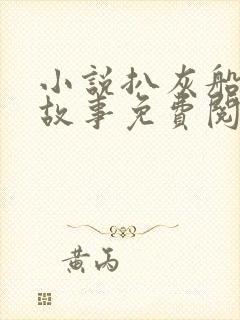 小說扒灰船
故事免費閱
黃丙